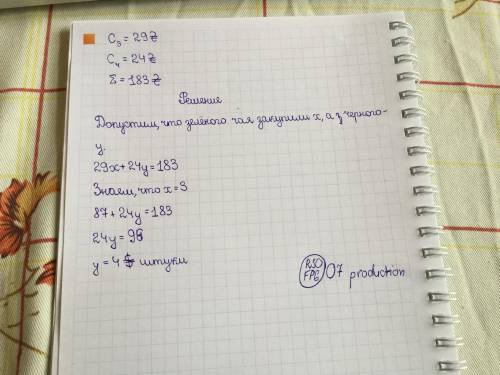 Cз = 29₴
Cч = 24₴
Σ = 183₴
Решение
Допустим, что зелёного чая закупили x, а чёрного-
y.
29x+24y=183
Знаем, что x=3
87+24y=183
24y=96
y=4 штуки
RSO
FPG
07 production